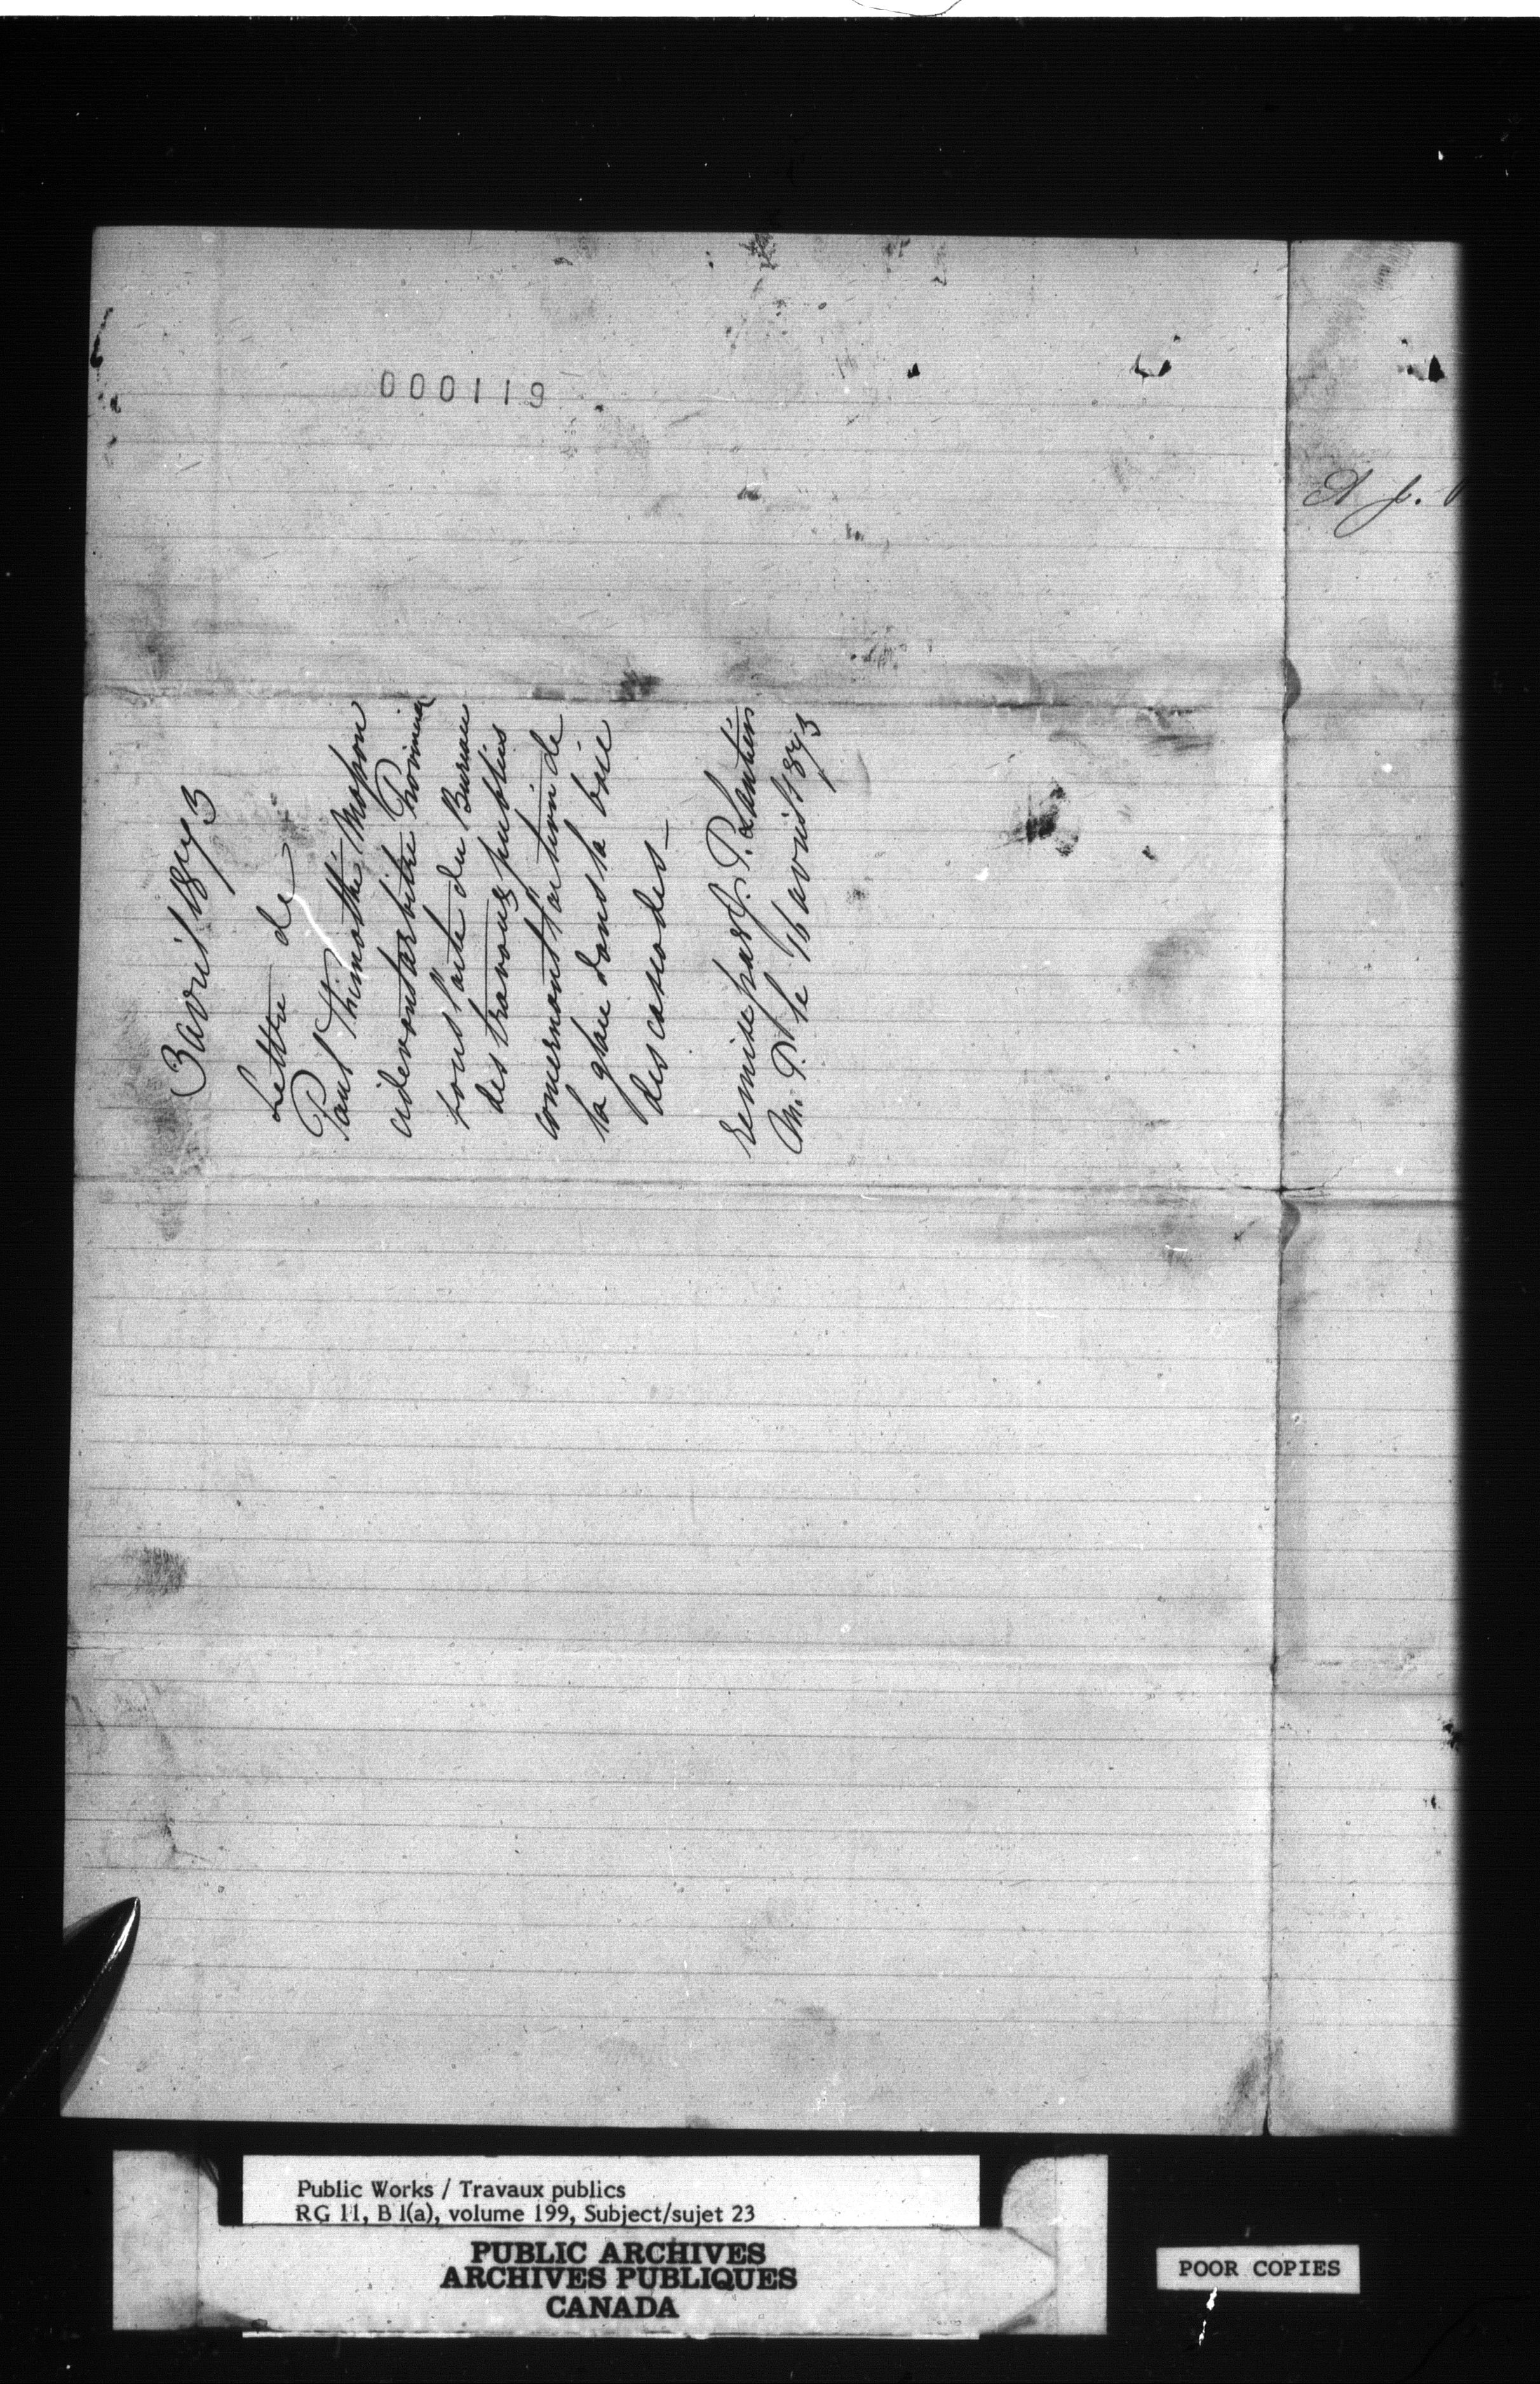 000119
A J.
3 avril 1873
Lettre de
Paul Thimothé Masson
cidevant arbitre Provincial
sous l'acte du Bureau
des travaux publics
concernant l'action de
la glace dans la baie
des cascades –
remise par J. P. Lantier
M. P. le 16 avril 1873
Public Works / Travaux publics
RG 11, B 1(a), volume 199, Subject/sujet 23
PUBLIC ARCHIVES
ARCHIVES PUBLIQUES
CANADA
POOR COPIES